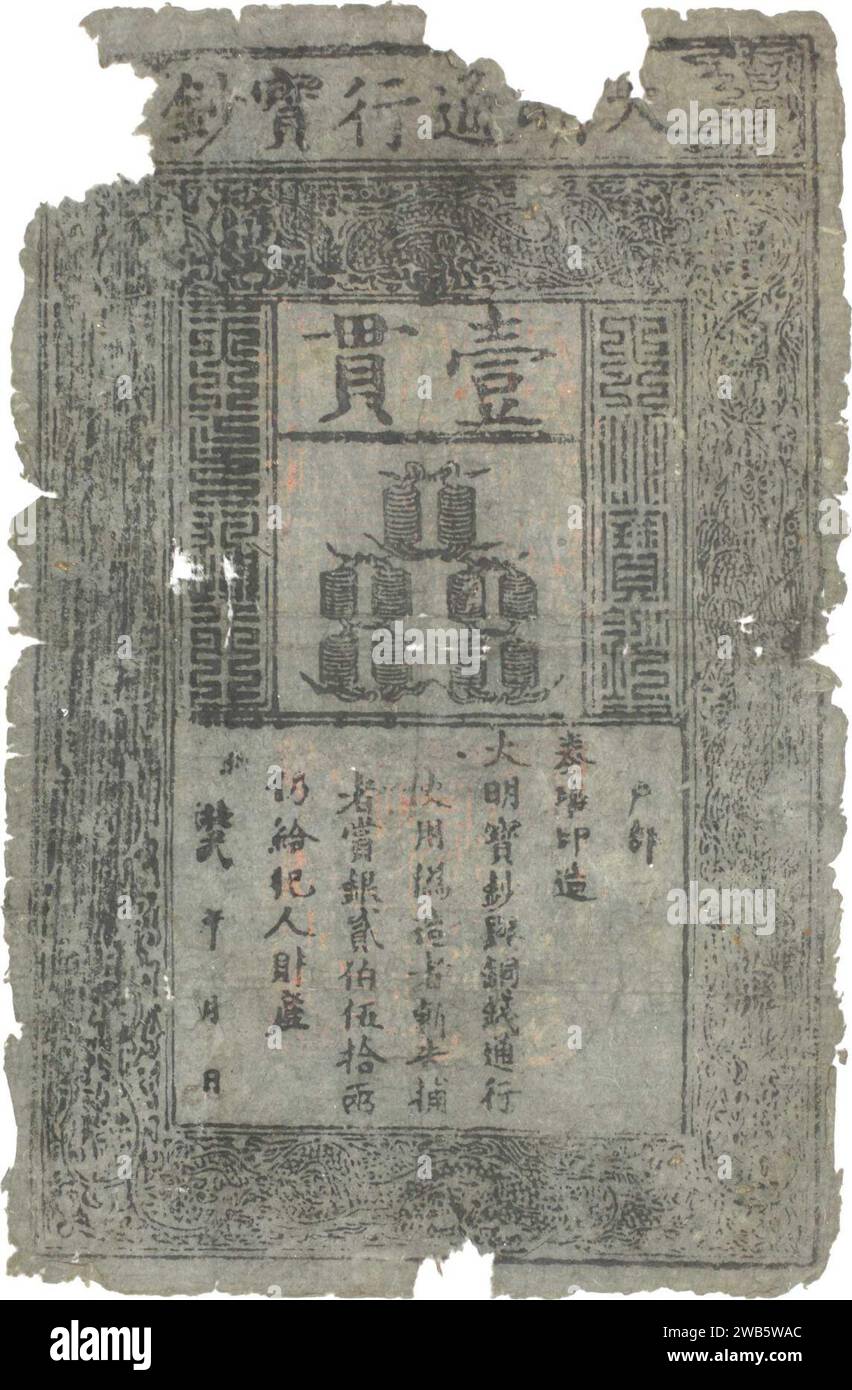 大明通行寶鈔
壹貫
戶部
奏準印造
大明寶鈔與銅錢通行
使用僞造者斬告捕
者賞銀貳伯伍拾兩
仍給犯人財產
洪武 年 月 日
alamy
alamy
Image ID: 2WB5WAC
www.alamy.com